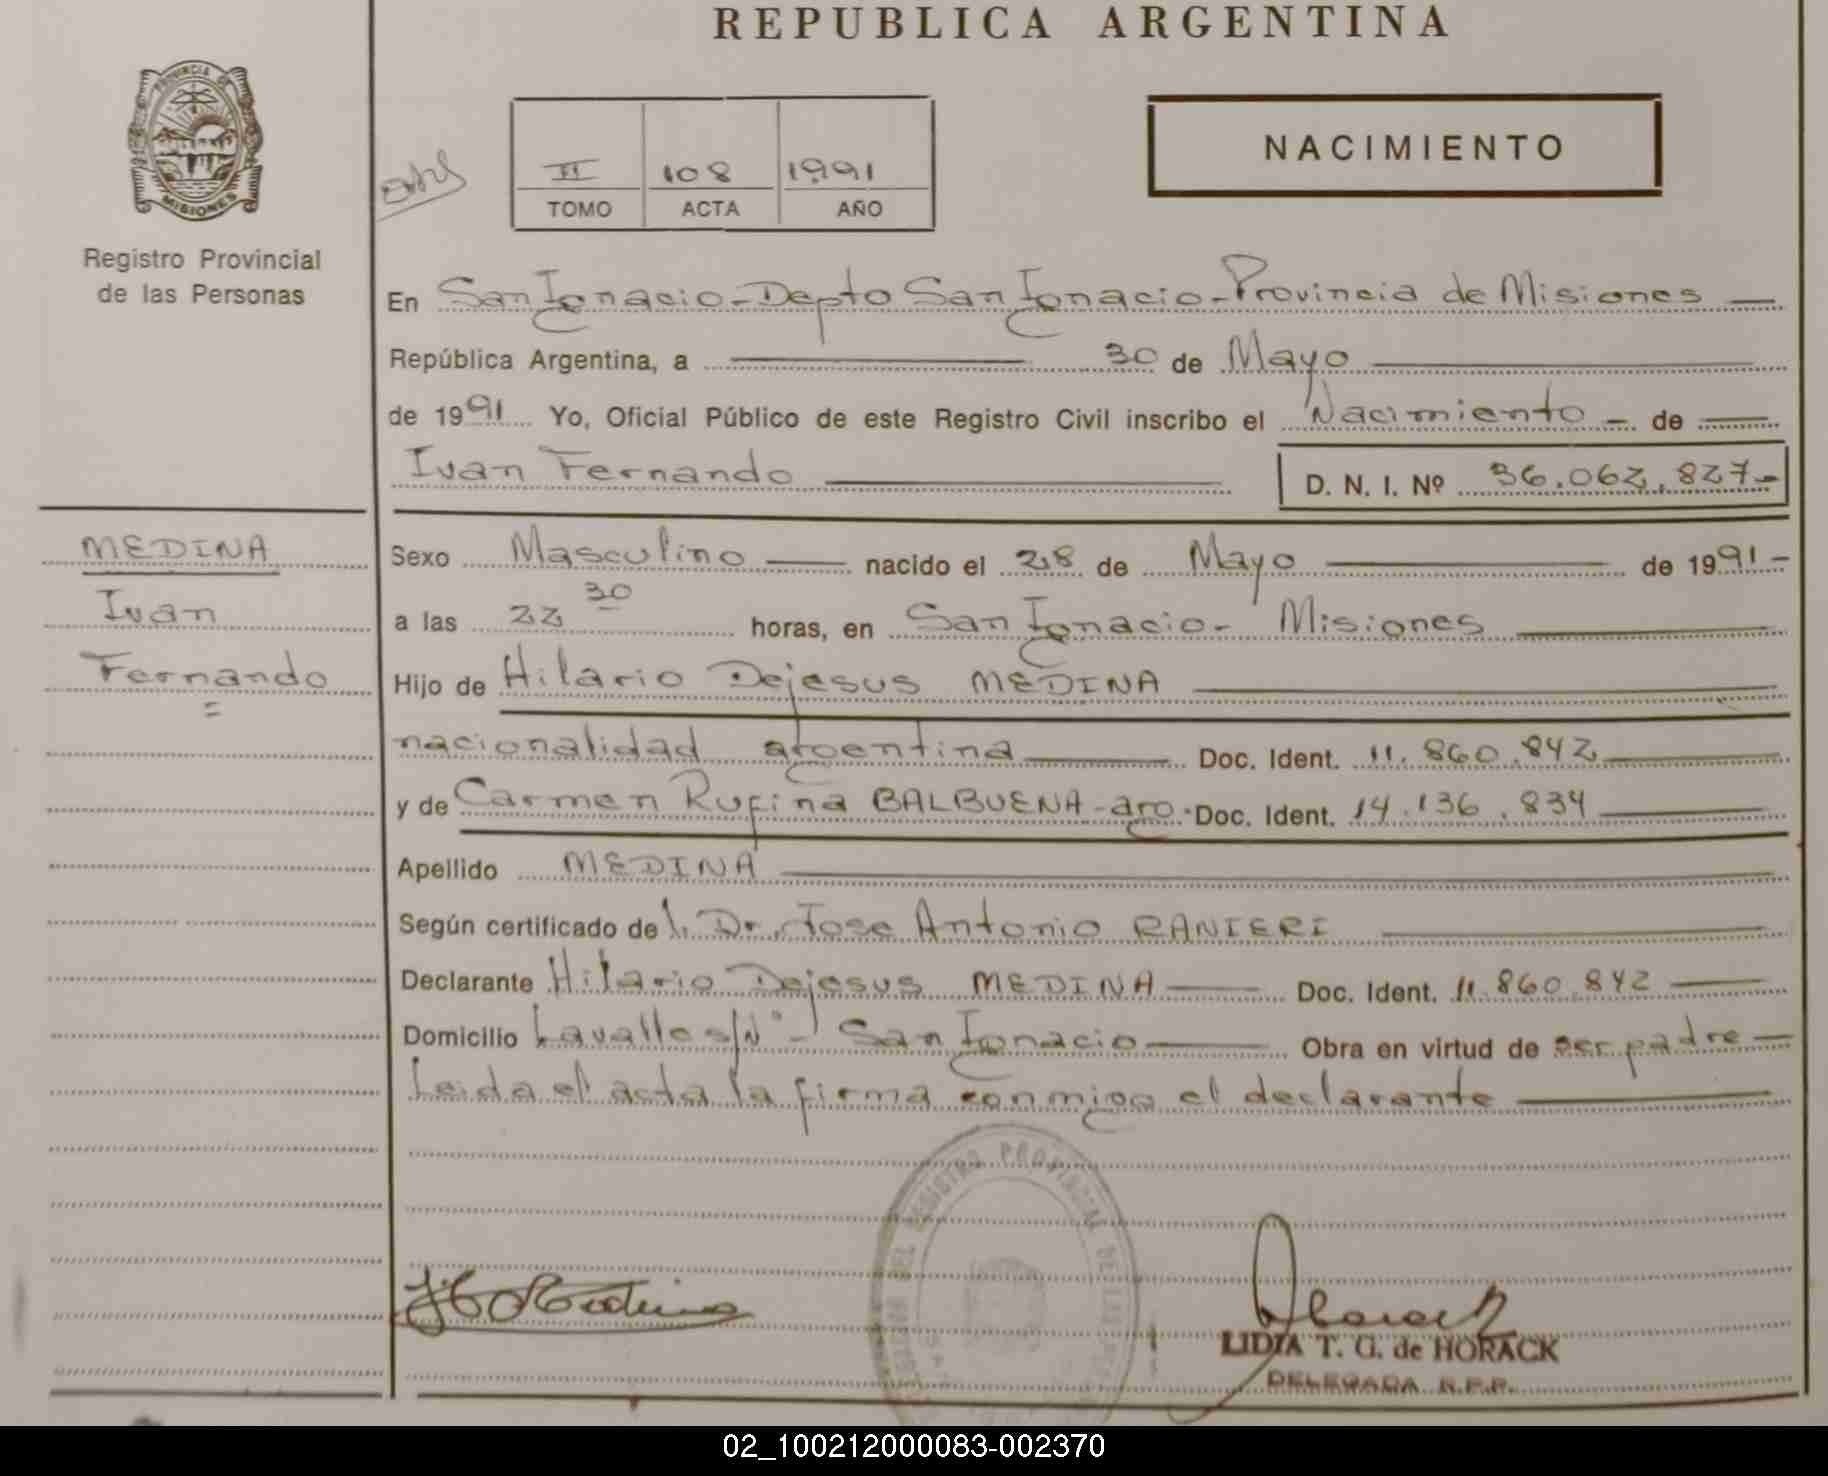 REPUBLICA ARGENTINA
PROVINCIA DE
MISIONES
Registro Provincial
de las Personas
II 108 1991
TOMO ACTA AÑO
NACIMIENTO
En San Ignacio - Depto San Ignacio - Provincia de Misiones
República Argentina, a 30 de Mayo
de 1991 Yo, Oficial Público de este Registro Civil inscribo el Nacimiento - de
Ivan Fernando D. N. I. Nº 36.062.827-
MEDINA
Ivan
Fernando
Sexo Masculino nacido el 28 de Mayo de 1991-
a las 22 30 horas, en San Ignacio - Misiones
Hijo de Hilario Dejesus MEDINA
nacionalidad argentina Doc. Ident. 11.860.842
y de Carmen Rufina BALBUENA - arg. Doc. Ident. 14.136.834
Apellido MEDINA
Según certificado de l. Dr. Jose Antonio RANIERI
Declarante Hilario Dejesus MEDINA Doc. Ident. 11.860.842
Domicilio Lavalle s/Nº - San Ignacio Obra en virtud de ser padre
Leida el acta la firma conmigo el declarante
DEL REGISTRO PROVINCIAL DE LAS
LIDIA T. G. de HORACK
DELEGADA R.P.P.
02_100212000083-002370